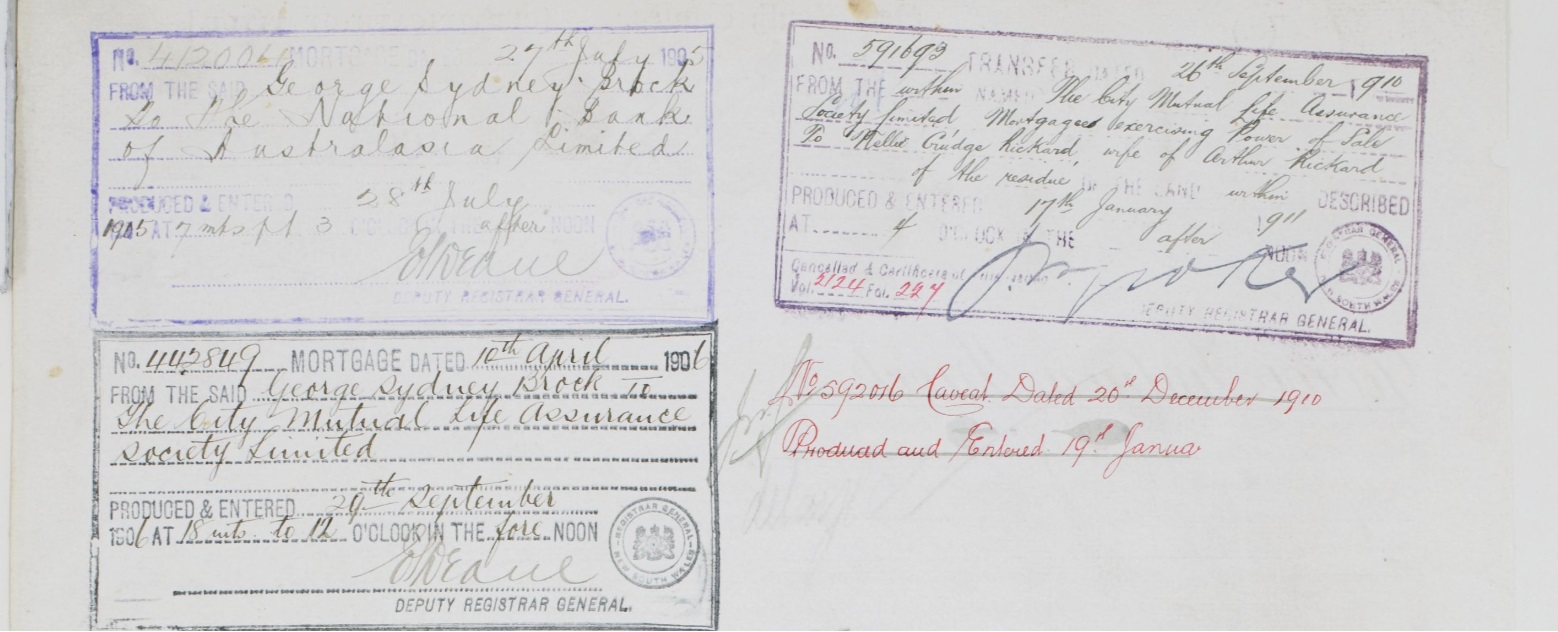 No. 412006 MORTGAGE 27th July 1905
FROM THE SAID George Sydney Brock
To The National Bank
of Australasia Limited
PRODUCED & ENTERED 28th July
1905 AT 7 mts pt 3 O'CLOCK IN THE after NOON
DEPUTY REGISTRAR GENERAL.
No. 442849 MORTGAGE DATED 10th April 1906
FROM THE SAID George Sydney Brock To
The City Mutual Life Assurance
Society Limited
PRODUCED & ENTERED 29th September
1906 AT 18 mts. to 12 O'CLOCK IN THE fore NOON
REGISTRAR GENERAL
NEW SOUTH WALES
DEPUTY REGISTRAR GENERAL.
No. 591693 TRANSFER DATED 26th September 1910
FROM THE within NAMED The City Mutual Life Assurance
Society limited Mortgagee exercising Power of Sale
To Nellie Crudge Rickard, wife of Arthur Rickard
of the residue IN THE LAND within DESCRIBED
PRODUCED & ENTERED 17th January 1911
AT 4 O'CLOCK IN THE after NOON
Cancelled & Certificate of
Vol. 2124 Fol. 227
REGISTRAR GENERAL
NEW SOUTH WALES
DEPUTY REGISTRAR GENERAL.
No 592016 Caveat Dated 20th December 1910
Produced and Entered 19th Janua